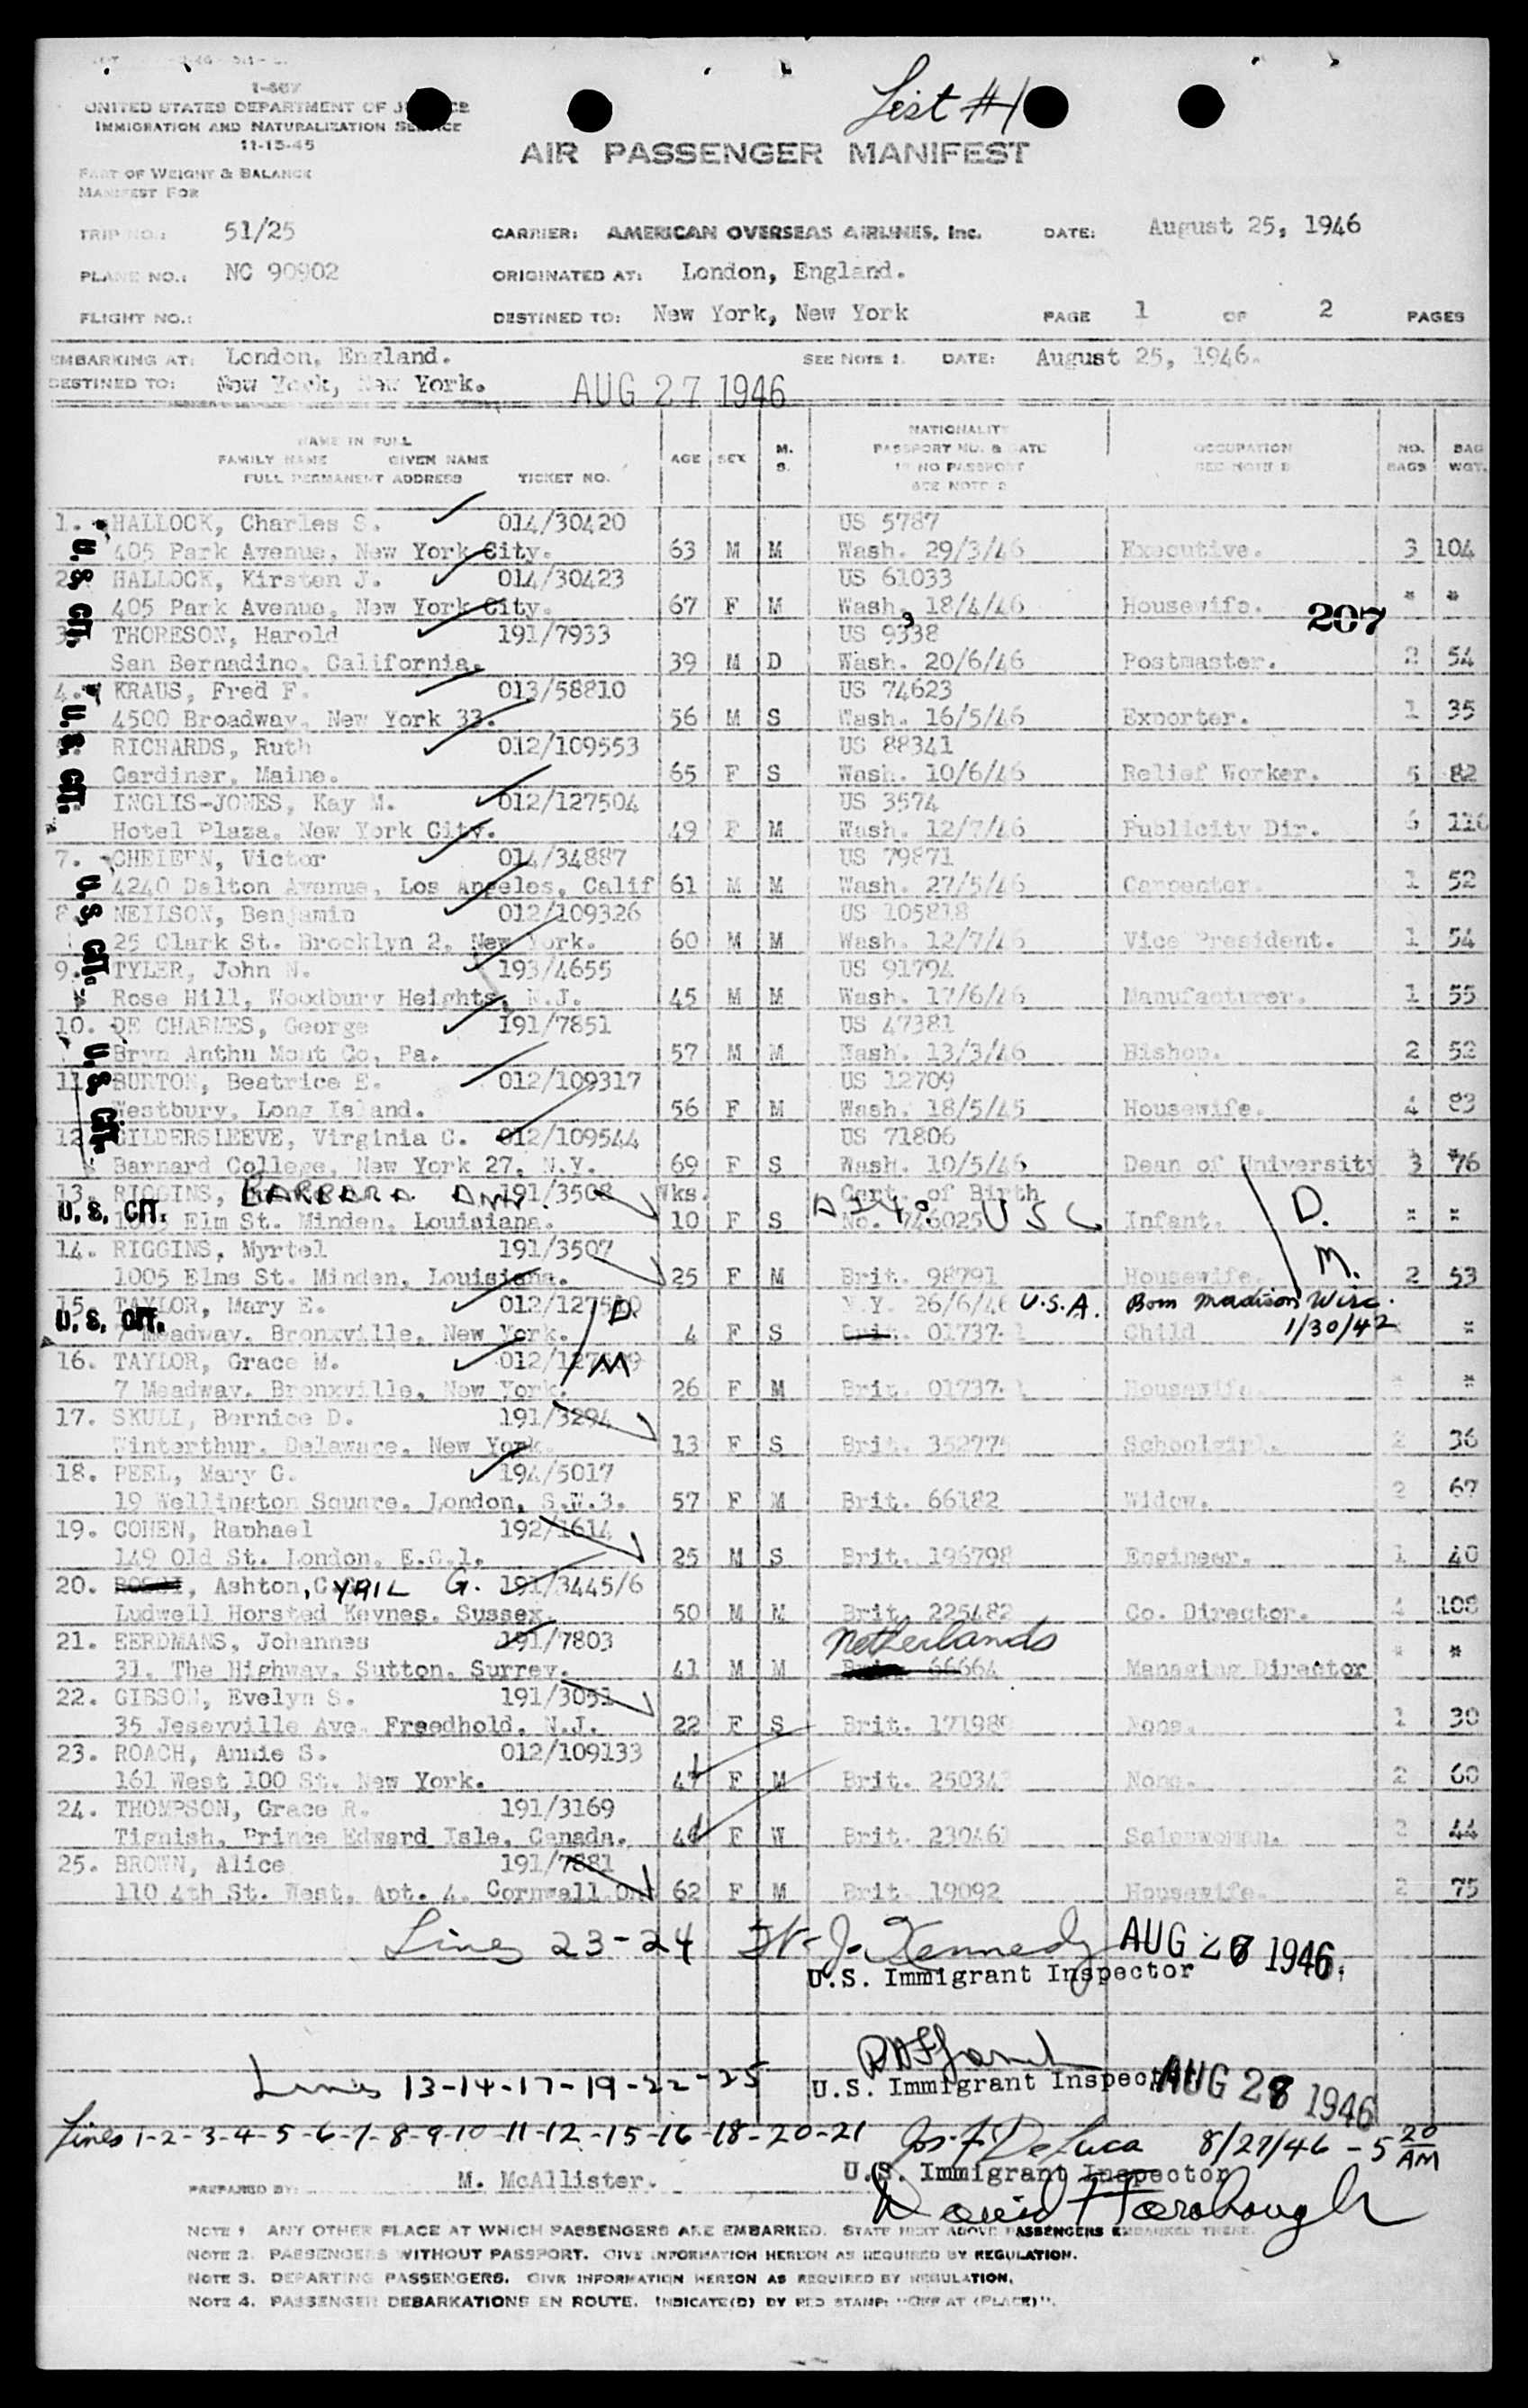 List #1
I-507
UNITED STATES DEPARTMENT OF JUSTICE
IMMIGRATION AND NATURALIZATION SERVICE
11-15-45
AIR PASSENGER MANIFEST
PART OF WEIGHT & BALANCE
MANIFEST FOR
TRIP NO.: 51/25 CARRIER: AMERICAN OVERSEAS AIRLINES, Inc. DATE: August 25, 1946
PLANE NO.: NC 90902 ORIGINATED AT: London, England.
FLIGHT NO.: DESTINED TO: New York, New York PAGE 1 OF 2 PAGES
EMBARKING AT: London, England. SEE NOTE 1. DATE: August 25, 1946.
DESTINED TO: New York, New York. AUG 27 1946
NAME IN FULL
FAMILY NAME GIVEN NAME
FULL PERMANENT ADDRESS TICKET NO. AGE SEX M. S. NATIONALITY PASSPORT NO. & DATE IF NO PASSPORT SEE NOTE 2 OCCUPATION SEE NOTE 3 NO. BAGS BAG WGT.
1. HALLOCK, Charles S. 014/30420 US 5787
405 Park Avenue, New York City. 63 M M Wash. 29/3/46 Executive. 3 104
2. HALLOCK, Kirsten J. 014/30423 US 61033
405 Park Avenue, New York City. 67 F M Wash. 18/4/46 Housewife. " "
207
3. THORESON, Harold 191/7933 US 9338
San Bernadino, California. 39 M D Wash. 20/6/46 Postmaster. 2 54
4. KRAUS, Fred F. 013/58810 US 74623
4500 Broadway, New York 33. 56 M S Wash. 16/5/46 Exporter. 1 35
RICHARDS, Ruth 012/109553 US 88341
Gardiner, Maine. 65 F S Wash. 10/6/46 Relief Worker. 5 82
INGLIS-JONES, Kay M. 012/127504 US 3574
Hotel Plaza, New York City. 49 F M Wash. 12/7/46 Publicity Dir. 6 110
7. CHELEEN, Victor 014/34887 US 79871
4240 Dalton Avenue, Los Angeles, Calif 61 M M Wash. 27/5/46 Carpenter. 1 52
8. NEILSON, Benjamin 012/109326 US 105818
25 Clark St. Brooklyn 2, New York. 60 M M Wash. 12/7/46 Vice President. 1 54
9. TYLER, John N. 193/4655 US 91794
Rose Hill, Woodbury Heights, N.J. 45 M M Wash. 17/6/46 Manufacturer. 1 55
10. DE CHARMES, George 191/7851 US 47381
Bryn Anthn Mont Co, Pa. 57 M M Wash. 13/3/46 Bishop. 2 52
11. BURTON, Beatrice E. 012/109317 US 12709
Westbury, Long Island. 56 F M Wash. 18/5/45 Housewife. 4 83
12. GILDERSLEEVE, Virginia C. 012/109544 US 71806
Barnard College, New York 27, N.Y. 69 F S Wash. 10/5/46 Dean of University 3 76
U.S. CIT.
U.S. CIT.
U.S. CIT.
U.S. CIT.
13. RIGGINS, BARBARA ANN. 191/3508 Wks. Cert. of Birth
U.S. CIT. 1005 Elm St. Minden, Louisiana. 10 F S No. 746025 USC Infant. D. " "
14. RIGGINS, Myrtel 191/3507 M.
1005 Elms St. Minden, Louisiana. 25 F M Brit. 98791 Housewife. 2 53
15. TAYLOR, Mary E. 012/127510 D N.Y. 26/6/46 U.S.A. Born Madison Wisc.
U.S. CIT. 7 Meadway, Bronxville, New York. 4 F S Brit. 01737 Child 1/30/42 "
16. TAYLOR, Grace M. 012/127509 M
7 Meadway, Bronxville, New York. 26 F M Brit. 01737 Housewife. " "
17. SKULL, Bernice D. 191/3294
Winterthur, Delaware, New York. 13 F S Brit. 352775 Schoolgirl. 2 36
18. PEEL, Mary G. 194/5017
19 Wellington Square, London, S.W.3. 57 F M Brit. 66182 Widow. 2 67
19. COHEN, Raphael 192/1614
149 Old St. London, E.C.1. 25 M S Brit. 196798 Engineer. 1 40
20. Ashton, CYRIL G. 191/3445/6
Ludwell Horsted Keynes, Sussex. 50 M M Brit. 225482 Co. Director. 4 108
21. EERDMANS, Johannes 191/7803 Netherlands
31, The Highway, Sutton, Surrey. 41 M M Brit. 66664 Managing Director " "
22. GIBSON, Evelyn S. 191/3051
35 Jeseyville Ave. Freedhold, N.J. 22 F S Brit. 171989 None. 1 30
23. ROACH, Annie S. 012/109133
161 West 100 St. New York. 47 F M Brit. 25034 None. 2 60
24. THOMPSON, Grace R. 191/3169
Tignish, Prince Edward Isle, Canada. 44 F W Brit. 23046 Saleswoman. 2 44
25. BROWN, Alice 191/7881
110 4th St. West, Apt. 4, Cornwall Ont 62 F M Brit 19092 Housewife. 2 75
Lines 23-24 W. J. Kennedy AUG 26 1946.
U.S. Immigrant Inspector
Lines 13-14-17-19-22-25 U.S. Immigrant Inspector AUG 28 1946
Lines 1-2-3-4-5-6-7-8-9-10-11-12-15-16-18-20-21 Jos. F. DeLuca 8/27/46 - 5 20 AM
U.S. Immigrant Inspector
PREPARED BY: M. McAllister. David Harbough
NOTE 1. ANY OTHER PLACE AT WHICH PASSENGERS ARE EMBARKED. STATE NEXT ABOVE PASSENGERS EMBARKED THERE.
NOTE 2. PASSENGERS WITHOUT PASSPORT. GIVE INFORMATION HEREON AS REQUIRED BY REGULATION.
NOTE 3. DEPARTING PASSENGERS. GIVE INFORMATION HEREON AS REQUIRED BY REGULATION.
NOTE 4. PASSENGER DEBARKATIONS EN ROUTE. INDICATE(D) BY RED STAMP: "OFF AT (PLACE)".